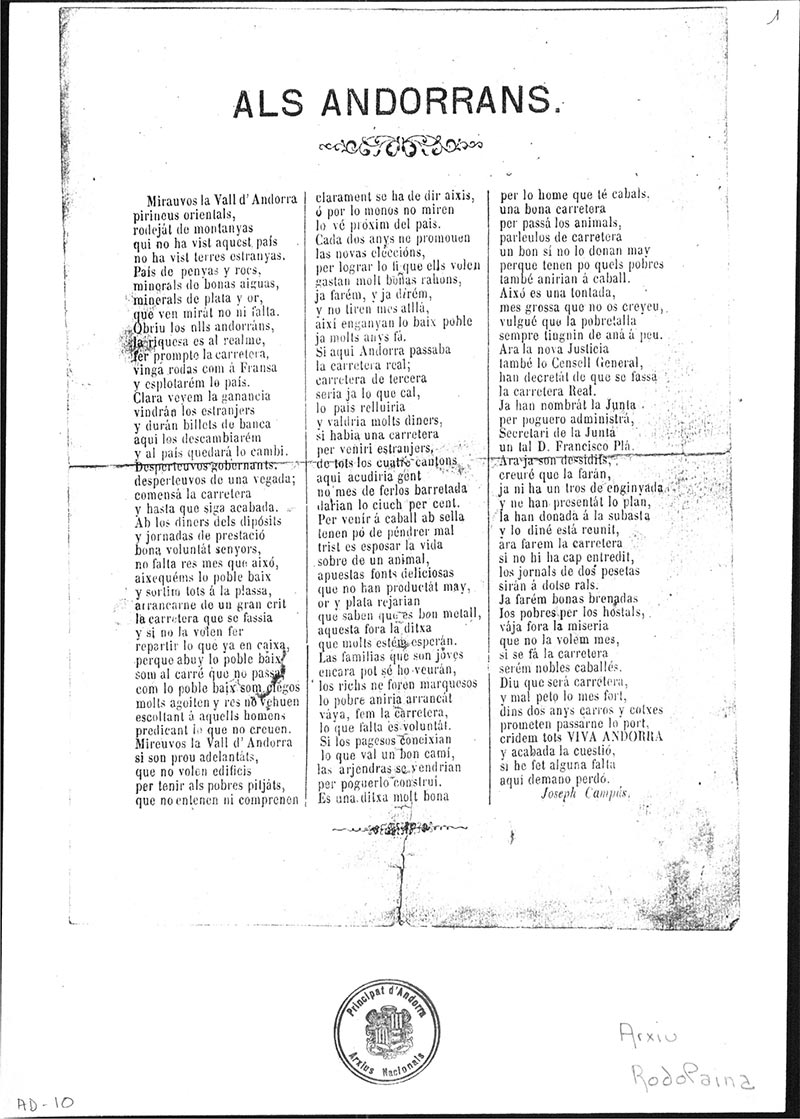 1
ALS ANDORRANS.
Mirauvos la Vall d' Andorra
pirineus orientals,
rodeját de montanyas
qui no ha vist aquest país
no ha vist terres estranyas.
País de penyas y rocs,
minerals de bonas aiguas,
minerals de plata y or,
que ven mirát no ni falta.
Obriu los ulls andorráns,
la riquesa es al realme,
fer prompte la carretera,
vinga rodas com á Fransa
y esplotarém lo país.
Clara veyem la ganancia
vindrán los estranjers
y durán billets de banca
aqui los descambiarém
y al país quedará lo cambi.
Desperteuvos gobernants,
desperteuvos de una vegada;
comensá la carretera
y hasta que siga acabada.
Ab los diners dels dipósits
y jornadas de prestació
bona voluntát senyors,
no falta res mes que aixó,
aixequéms lo poble baix
y sortim tots á la plassa,
arrancarne de un gran crit
la carretera que se fassia
y si no la volen fer
repartir lo que ya en caixa,
perque abuy lo poble baix
som al carré que no passa
com lo poble baix som cégos
molts agoiten y res no vehuen
escoltant á aquells homens
predicant lo que no creuen.
Mireuvos la Vall d' Andorra
si son prou adelantáts,
que no volen edificis
per tenir als pobres pitjáts,
que no entenen ni comprenen
clarament se ha de dir aixis,
ó por lo monos no miren
lo vé próxim del pais.
Cada dos anys ne promouen
las novas eleccións,
per lograr lo fi que ells volen
gastan molt bonas rahons,
ja farém, y ja dirém,
y no tiren mes atllá,
així enganyan lo baix poble
ja molts anys fá.
Si aqui Andorra passaba
la carretera real;
carretera de tercera
seria ja lo que cal,
lo país relluiria
y valdria molts diners,
si habia una carretera
per veniri estranjers,
de tots los cuatre cantons
aqui acudiria gent
no mes de ferlos barretada
darian lo ciuch per cent.
Per venir á caball ab sella
tenen pó de péndrer mal
trist es esposar la vida
sobre de un animal,
apuestas fonts deliciosas
que no han productát may,
or y plata rejarian
que saben que es bon metall,
aquesta fora la ditxa
que molts estém esperán.
Las familias que son joves
encara pot sé ho veurán,
los richs ne foren marquesos
lo pobre aniria arrancát
váya, fem la carretera,
lo que falta es voluntát.
Si los pagesos coneixian
lo que val un bon camí,
las arjendras se vendrian
per poguerlo construí.
Es una ditxa molt bona
per lo home que té cabals,
una bona carretera
per passá los animals,
parleulos de carretera
un bon sí no lo donan may
perque tenen po quels pobres
també anirian á caball.
Aixó es una tontada,
mes grossa que no os creyeu,
vulgué que la pobretalla
sempre tinguin de aná á peu.
Ara la nova Justicia
també lo Consell General,
han decretát de que se fassa
la carretera Real.
Ja han nombrát la Junta
per poguero administrá,
Secretari de la Junta
un tal D. Francisco Plá.
Ara ja son dessidits,
creuré que la farán,
ja ni ha un tros de enginyada
y ne han presentát lo plan,
la han donada á la subasta
y lo diné está reunit,
ara farem la carretera
si no hi ha cap entredit,
los jornals de dos pesetas
sirán á dotse rals.
Ja farém bonas brenadas
los pobres per los hostals,
vája fora la miseria
que no la volem mes,
si se fá la carretera
serém nobles caballés.
Diu que será carretera,
y mal peto lo mes fort,
dins dos anys carros y cotxes
prometen passarne lo port,
cridem tots VIVA ANDORRA
y acabada la cuestió,
si he fet alguna falta
aqui demano perdó.
Joseph Campás.
Principat d'Andorra
Arxius Nacionals
Arxiu
RodoPaina
AD-10